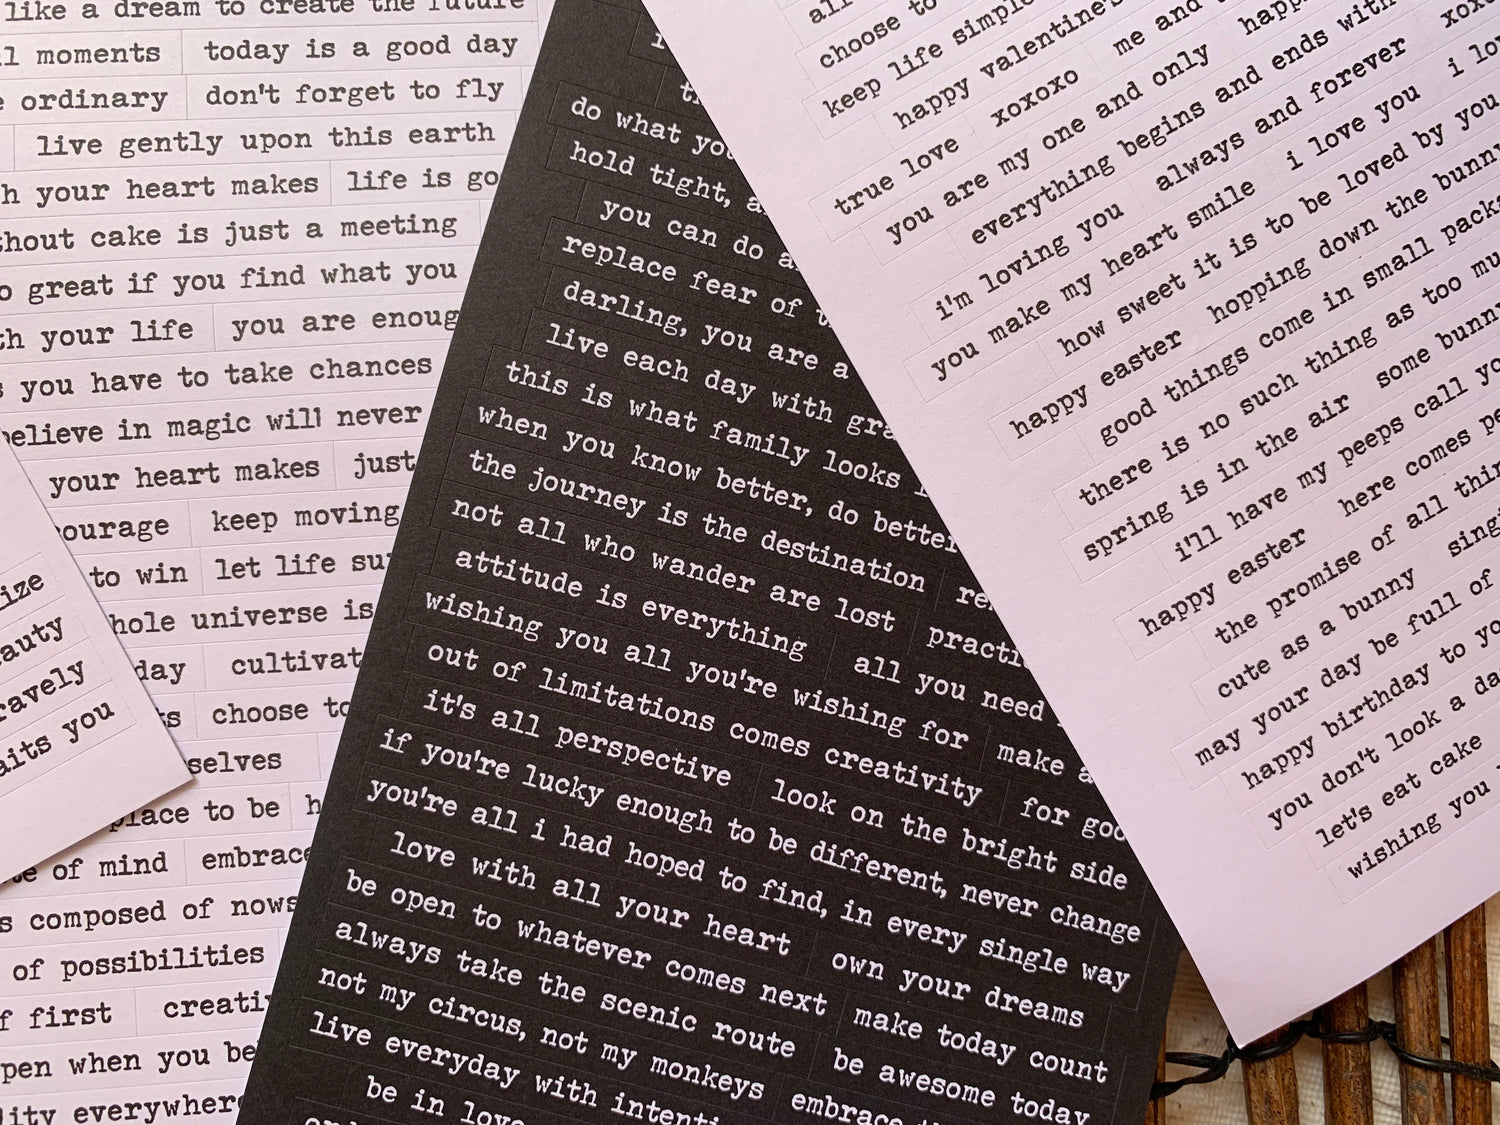 like a dream to create the future
moments today is a good day
ordinary don't forget to fly
live gently upon this earth
your heart makes life is
cake is just a meeting
great if you find what you
your life you are
you have to take chances
believe in magic will never
your heart makes just
keep moving
to win let life
universe is
day
choose
selves
place to be
of mind embrace
composed of nows
of possibilities
first
when you be
ize
auty
ravely
aits you
do what
hold tight,
you can do
replace fear of
darling, you are a
live each day with
this is what family looks
when you know better, do better
the journey is the destination
not all who wander are lost
attitude is everything
wishing you all you're wishing for make
out of limitations comes creativity for
it's all perspective look on the bright side
if you're lucky enough to be different, never change
you're all i had hoped to find, in every single way
love with all your heart own your dreams
be open to whatever comes next make today count
always take the scenic route be awesome today
not my circus, not my monkeys embrace
live everyday with
be in
all you need
choose to
keep life simple
happy valentine's
xoxoxo me and
true love
you are my one and only
everything begins and ends with
i'm loving you always and forever
you make my heart smile i love you
how sweet it is to be loved by you
happy easter hopping down the bunny
good things come in small
there is no such thing as too
spring is in the air some bunny
i'll have my peeps call
happy easter here comes
the promise of all
cute as a bunny
may your day be full of
happy birthday to
you don't look a
let's eat cake
wishing you